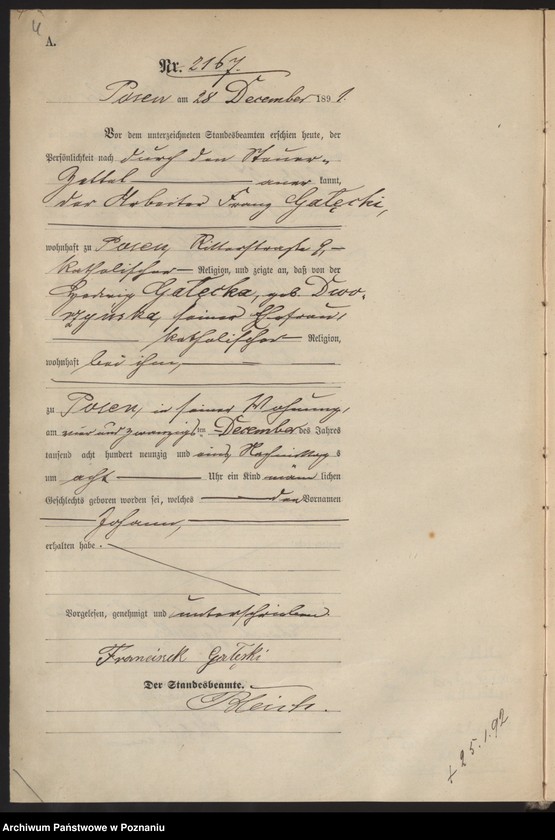 4
A.
Nr. 2167.
Posen am 28 December 1891.
Vor dem unterzeichneten Standesbeamten erschien heute, der
Persönlichkeit nach durch den Steuer-
Zettel anerkannt,
der Arbeiter Franz Gałęcki,
wohnhaft zu Posen, Ritterstraße 9,
katholischer Religion, und zeigte an, daß von der
Hedwig Gałęcka, geb. Dwo-
seiner Ehefrau,
katholischer Religion,
wohnhaft bei ihm,
zu Posen, in seiner Wohnung,
am vier und zwanzigsten December des Jahres
tausend acht hundert neunzig und eins Nachmittags
um acht Uhr ein Kind männlichen
Geschlechts geboren worden sei, welches den Vornamen
Johann,
erhalten habe.
Vorgelesen, genehmigt und unterschrieben
Francisek Gałęski
Der Standesbeamte.
† 25.1.92
Archiwum Państwowe w Poznaniu